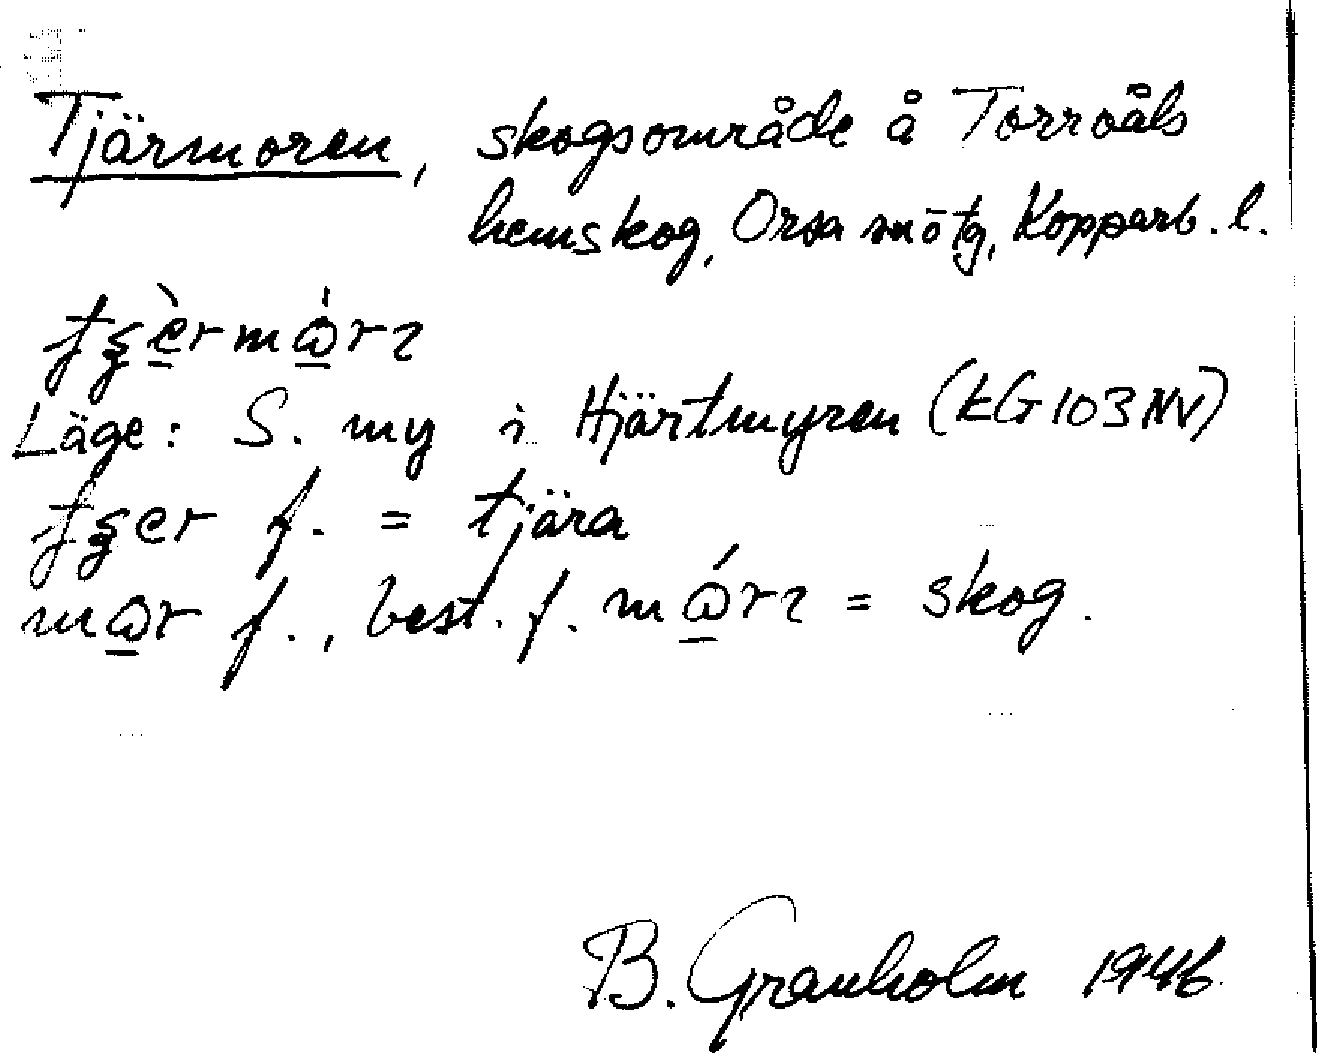 Tjärmoren, skogsområde å Torrvåls
hemskog, Orsa snötg, Kopparb. l.
Läge: S. my i Hjärtmyren (kG 103 NV)
f. = tjära
f., best. f. = skog.
B. Granholm 1946